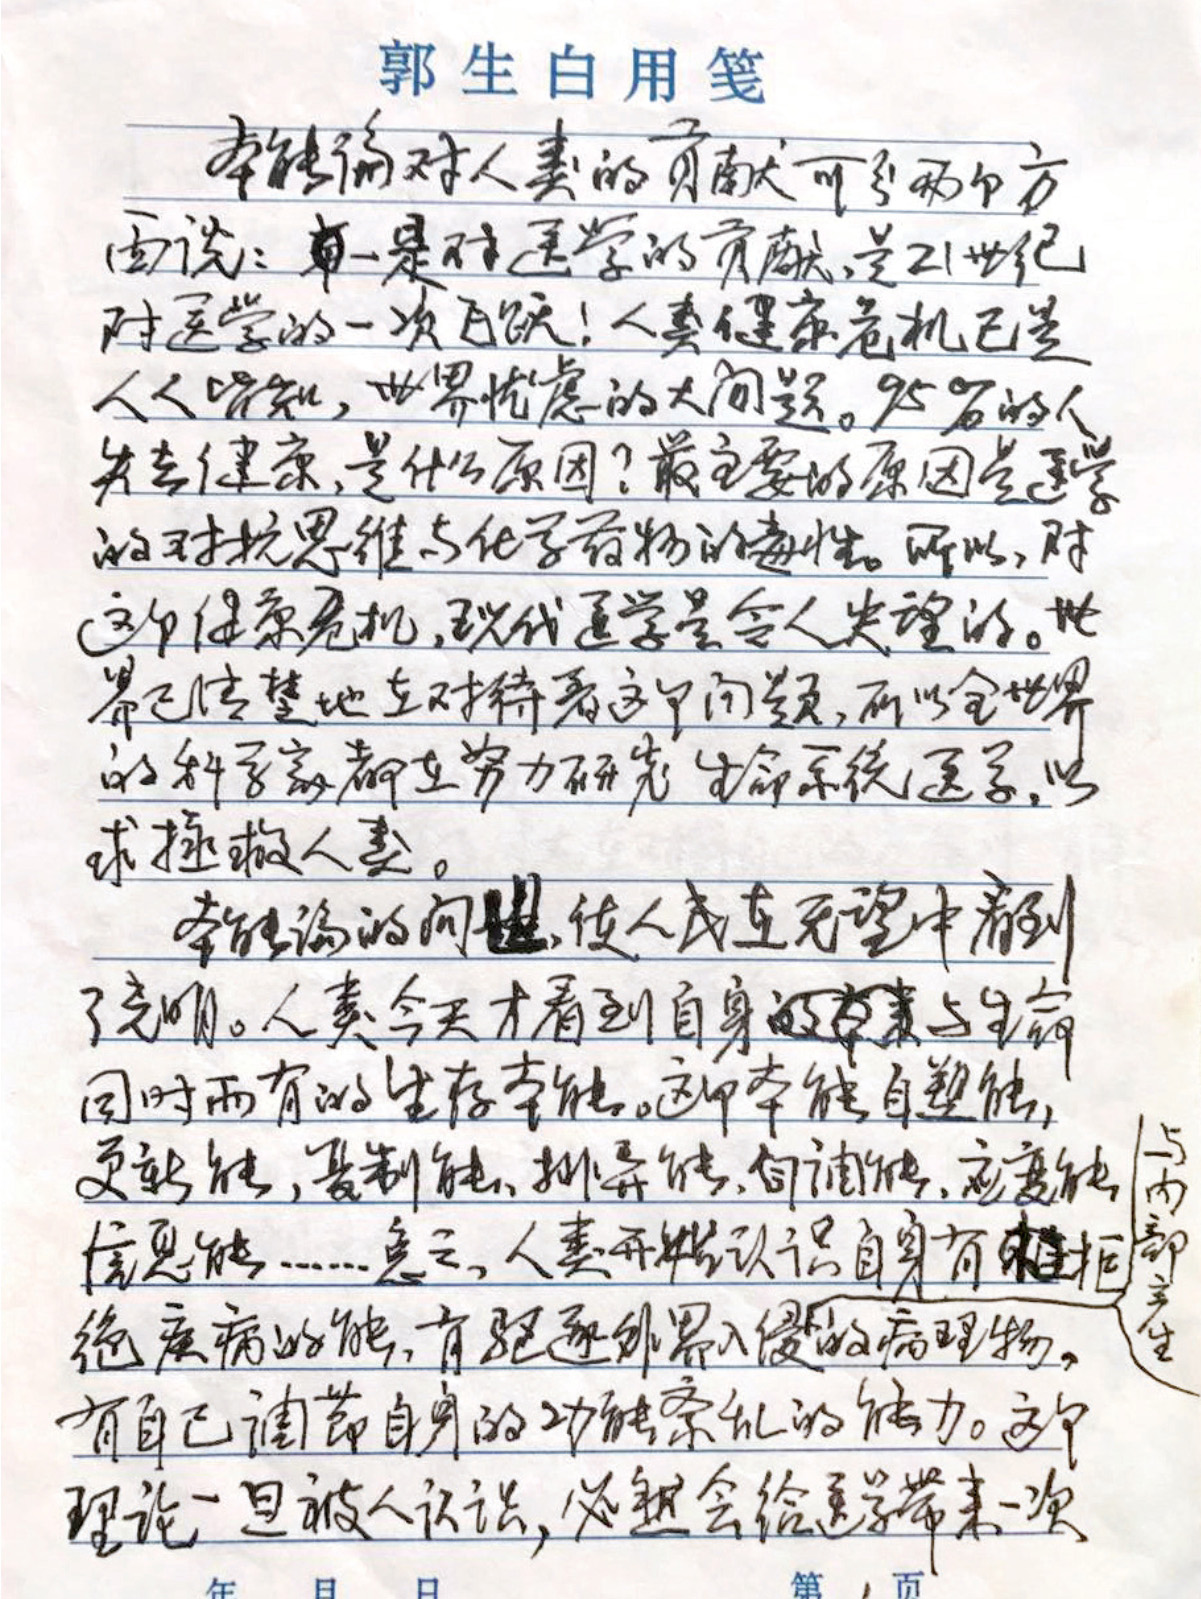 郭生白用笺
本能论对人类的贡献可分两个方
面说：一是对医学的贡献，是21世纪
对医学的一次飞跃！人类健康危机已是
人人皆知，世界忧虑的大问题。95%的人
失去健康，是什么原因？最主要的原因是医学
的对抗思维与化学药物的毒性。所以，对
这个健康危机，现代医学是令人失望的。世
界已清楚地在对待着这个问题，所以全世界
的科学家都在努力研究生命系统医学，以
求拯救人类。
本能论的问世，使人民在无望中看到
了光明。人类今天才看到自身与生命
同时而有的生存本能。这个本能自塑能，
更新能，复制能、排异能、自调能、应变能
信息能……总之，人类开始认识自身有拒
绝疾病的能，有驱逐外界入侵的病理物，
与内部产生
有自己调节自身的功能紊乱的能力。这个
理论一旦被人认识，必然会给医学带来一次
年 月 日 第1页